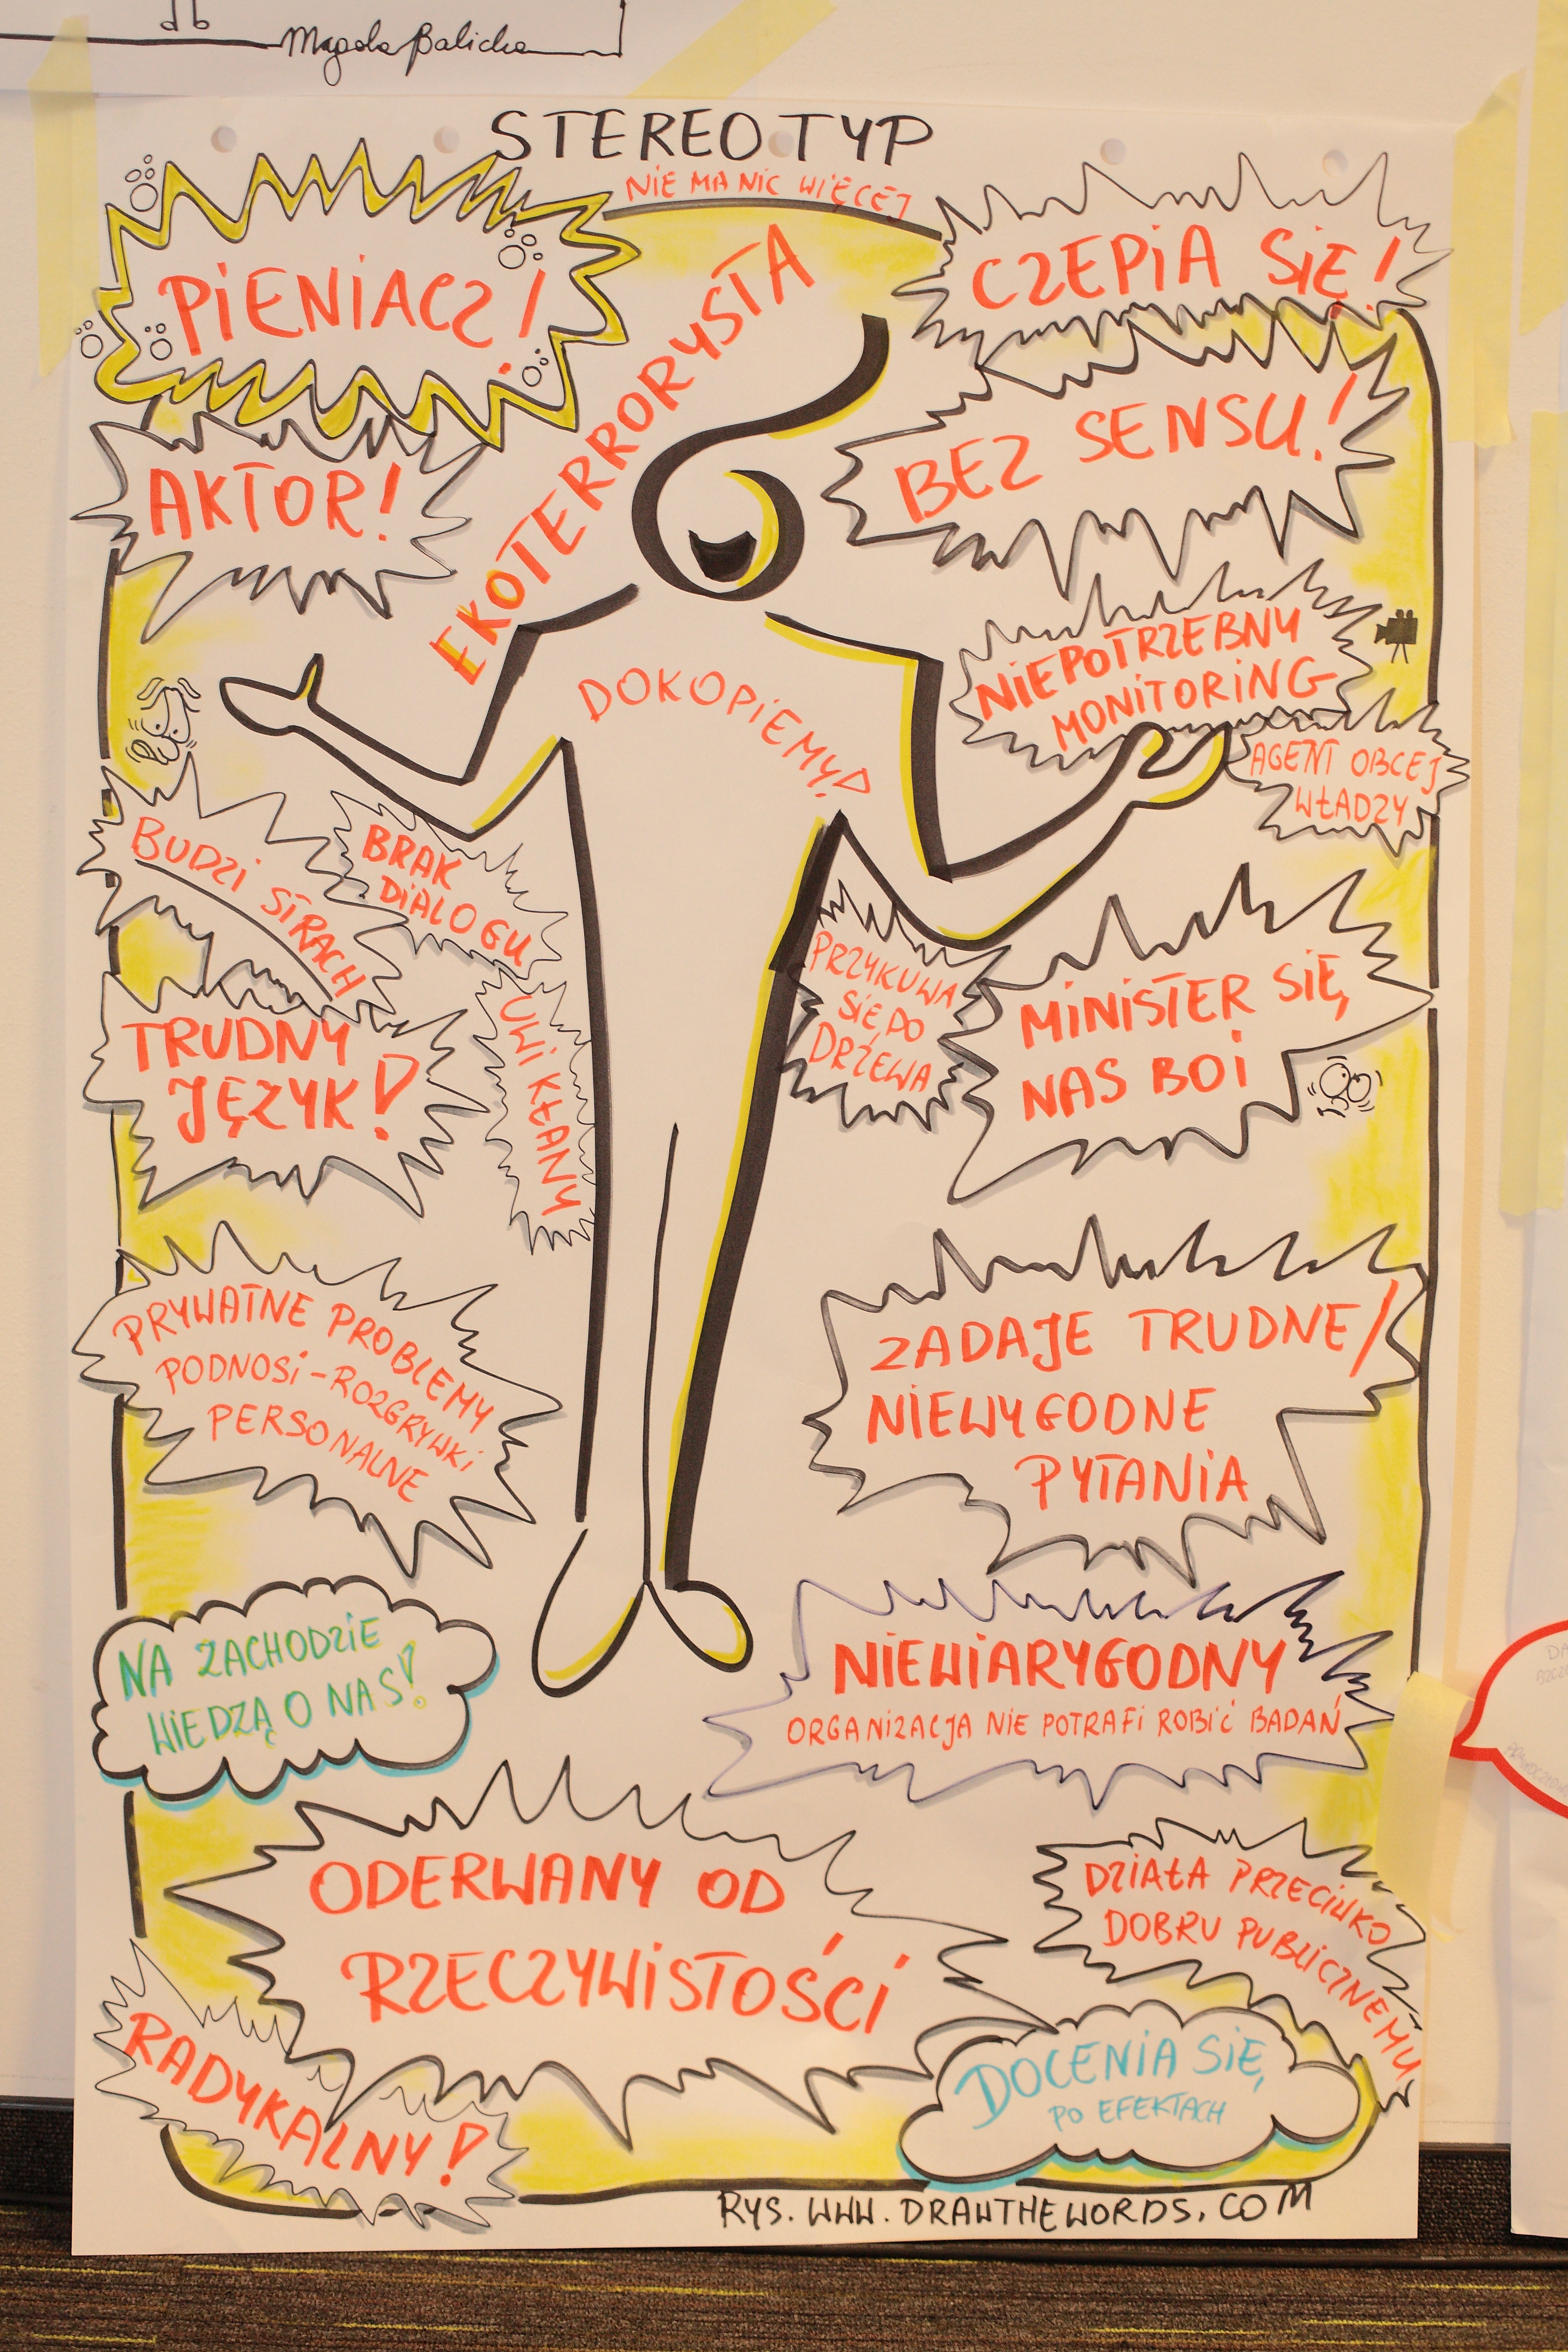 db
Magda Balicka
STEREOTYP
NIE MA NIC WIĘCEJ
PIENIACZ!
CZEPIA SIĘ!
EKOTERRORYSTA
AKTOR!
BEZ SENSU!
NIEPOTRZEBNY
MONITORING
DOKOPIEMY!
AGENT OBCEJ
WŁADZY
BUDZI STRACH
BRAK
DIALOGU
PRZYKUWA
SIĘ DO
DRZEWA
MINISTER SIĘ
NAS BOI
TRUDNY
JĘZYK!
UWI KŁANY
PRYWATNE PROBLEMY
PODNOSI - ROZGRYWKI
PERSONALNE
ZADAJE TRUDNE/
NIEWYGODNE
PYTANIA
NA ZACHODZIE
WIEDZĄ O NAS!
NIEWIARYGODNY
ORGANIZACJA NIE POTRAFI ROBIĆ BADAŃ
ODERWANY OD
RZECZYWISTOŚCI
DZIAŁA PRZECIWKO
DOBRU PUBLICZNEMU
RADYKALNY!
DOCENIA SIĘ
PO EFEKTACH
RYS. WWW.DRAWTHEWORDS.COM